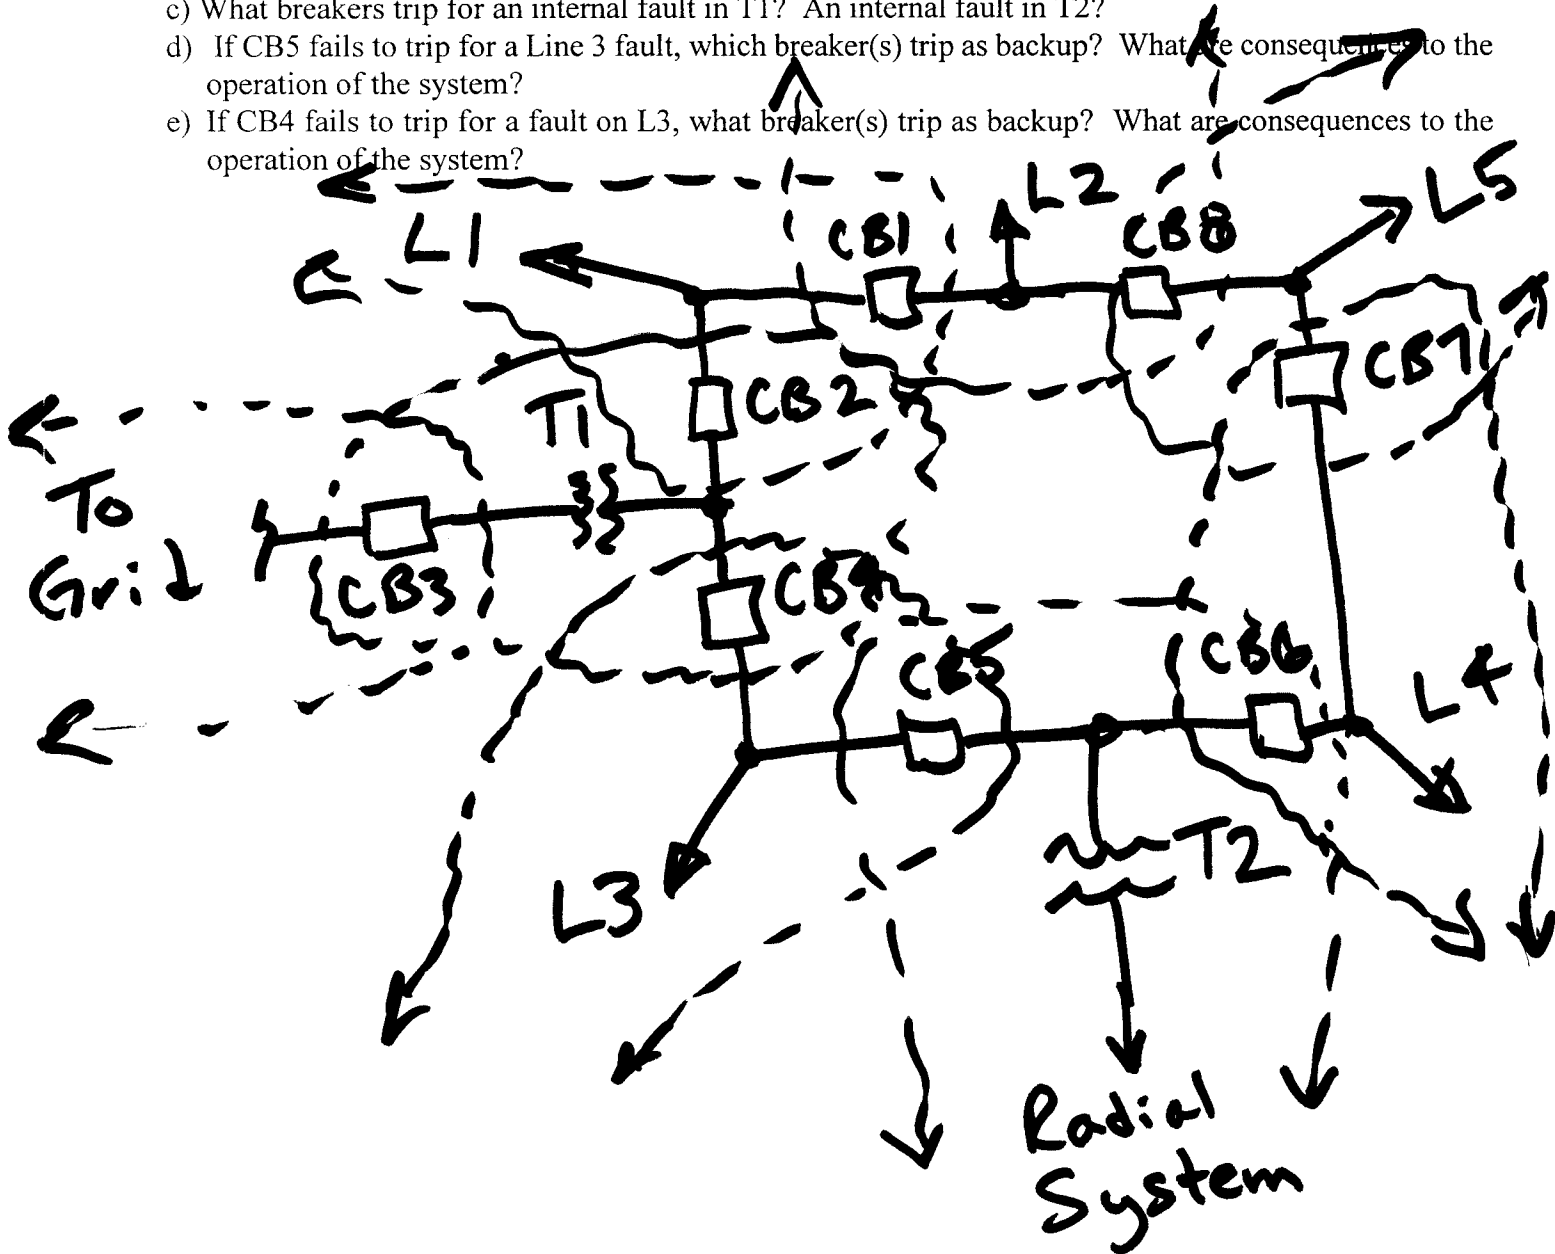 c) What breakers trip for an internal fault in T1? An internal fault in T2?
d) If CB5 fails to trip for a Line 3 fault, which breaker(s) trip as backup? What are consequences to the
operation of the system?
e) If CB4 fails to trip for a fault on L3, what breaker(s) trip as backup? What are consequences to the
operation of the system?
L1
CB1
L2
CB8
L5
T1
CB2
CB7
To
Grid
CB3
CB4
CB5
CB6
L4
L3
T2
Radial
System